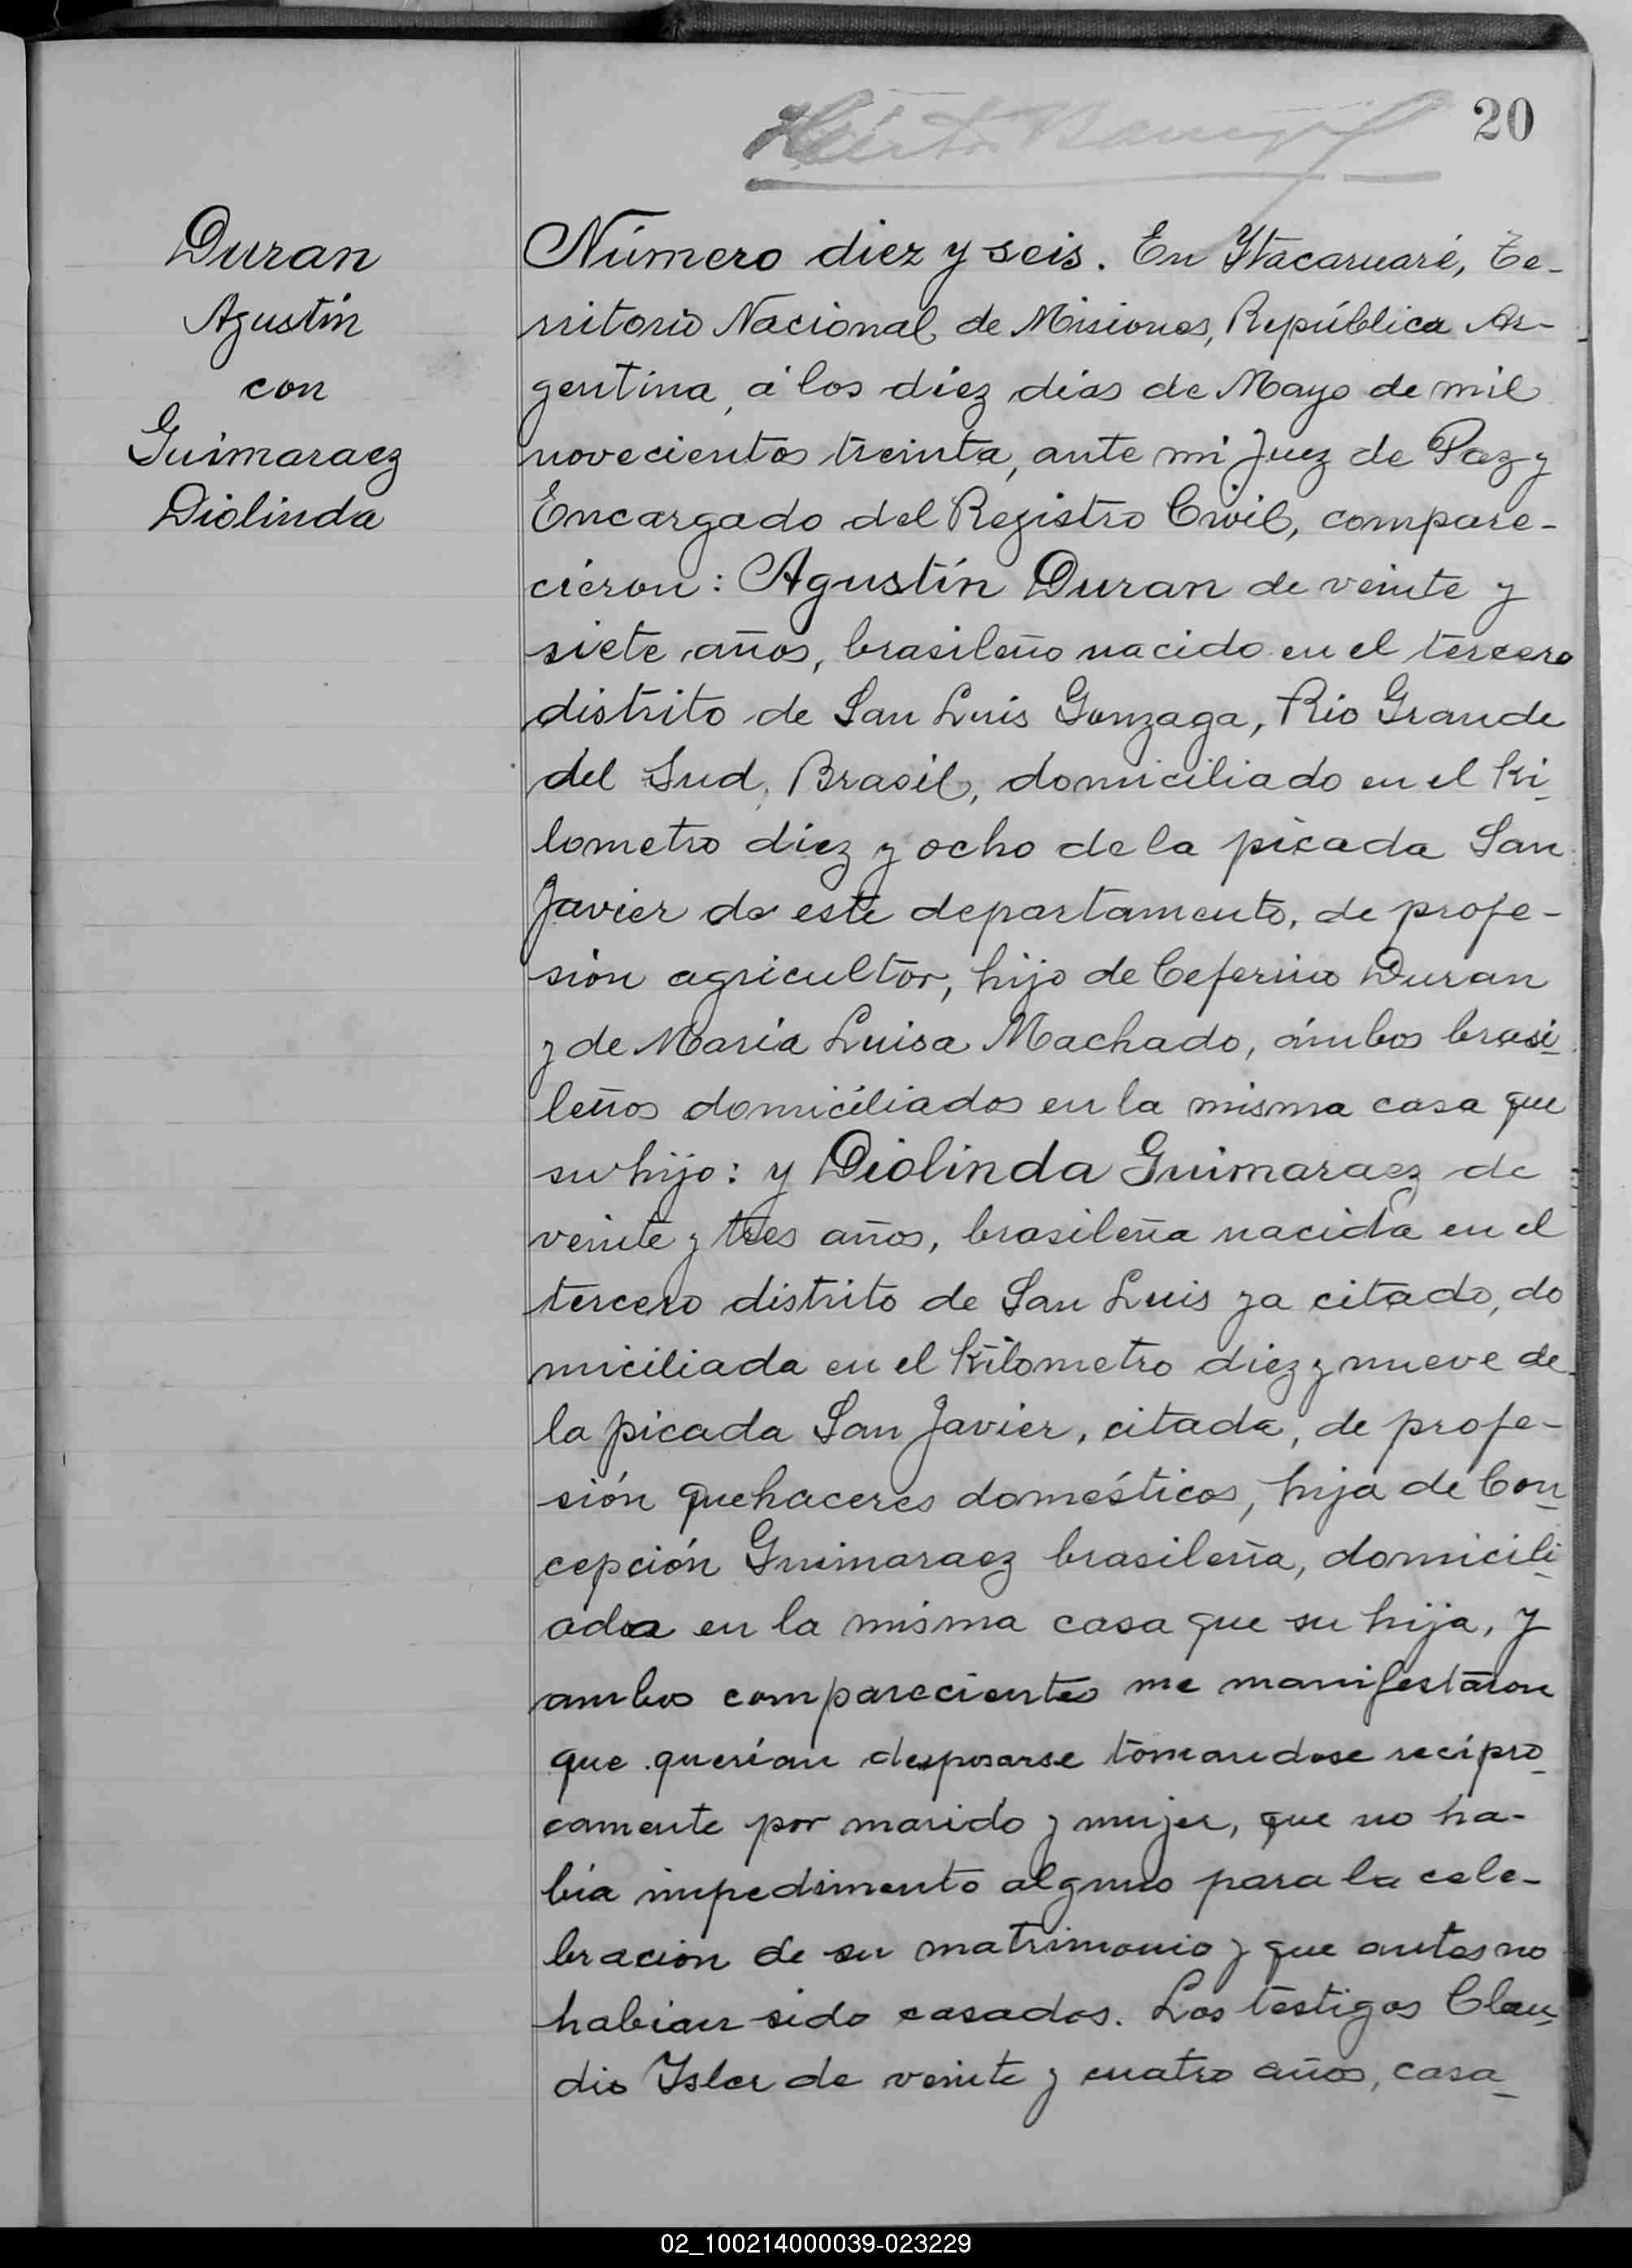 20
Duran
Agustín
con
Guimaraez
Diolinda
Número diez y seis. En Ytacaruaré, Te-
rritorio Nacional de Misiones, República Ar-
gentina, á los diez dias de Mayo de mil
novecientos treinta, ante mi Juez de Paz y
Encargado del Registro Civil, compare-
cieron: Agustín Duran de veinte y
siete años, brasileño nacido en el tercero
distrito de San Luis Gonzaga, Rio Grande
del Sud, Brasil, domiciliado en el Ki-
lometro diez y ocho de la picada San
Javier de este departamento, de profe-
sión agricultor, hijo de Ceferino Duran
y de Maria Luisa Machado, ámbos brasi-
leños domiciliados en la misma casa que
su hijo: y Diolinda Guimaraez de
veinte y tres años, brasileña nacida en el
tercero distrito de San Luis ya citado, do
miciliada en el Kilometro diez y nueve de
la picada San Javier, citada, de profe-
sión quehaceres domésticos, hija de Con-
cepción Guimaraez brasileña, domicili-
ada en la misma casa que su hija, y
ambos comparecientes me manifestaron
que querían desposarse tomandose recípro-
camente por marido y mujer, que no ha-
bía impedimento alguno para la cele-
bración de su matrimonio y que antes no
habian sido casados. Los testigos Clau-
dio Isler de veinte y cuatro años, casa-
02_100214000039-023229